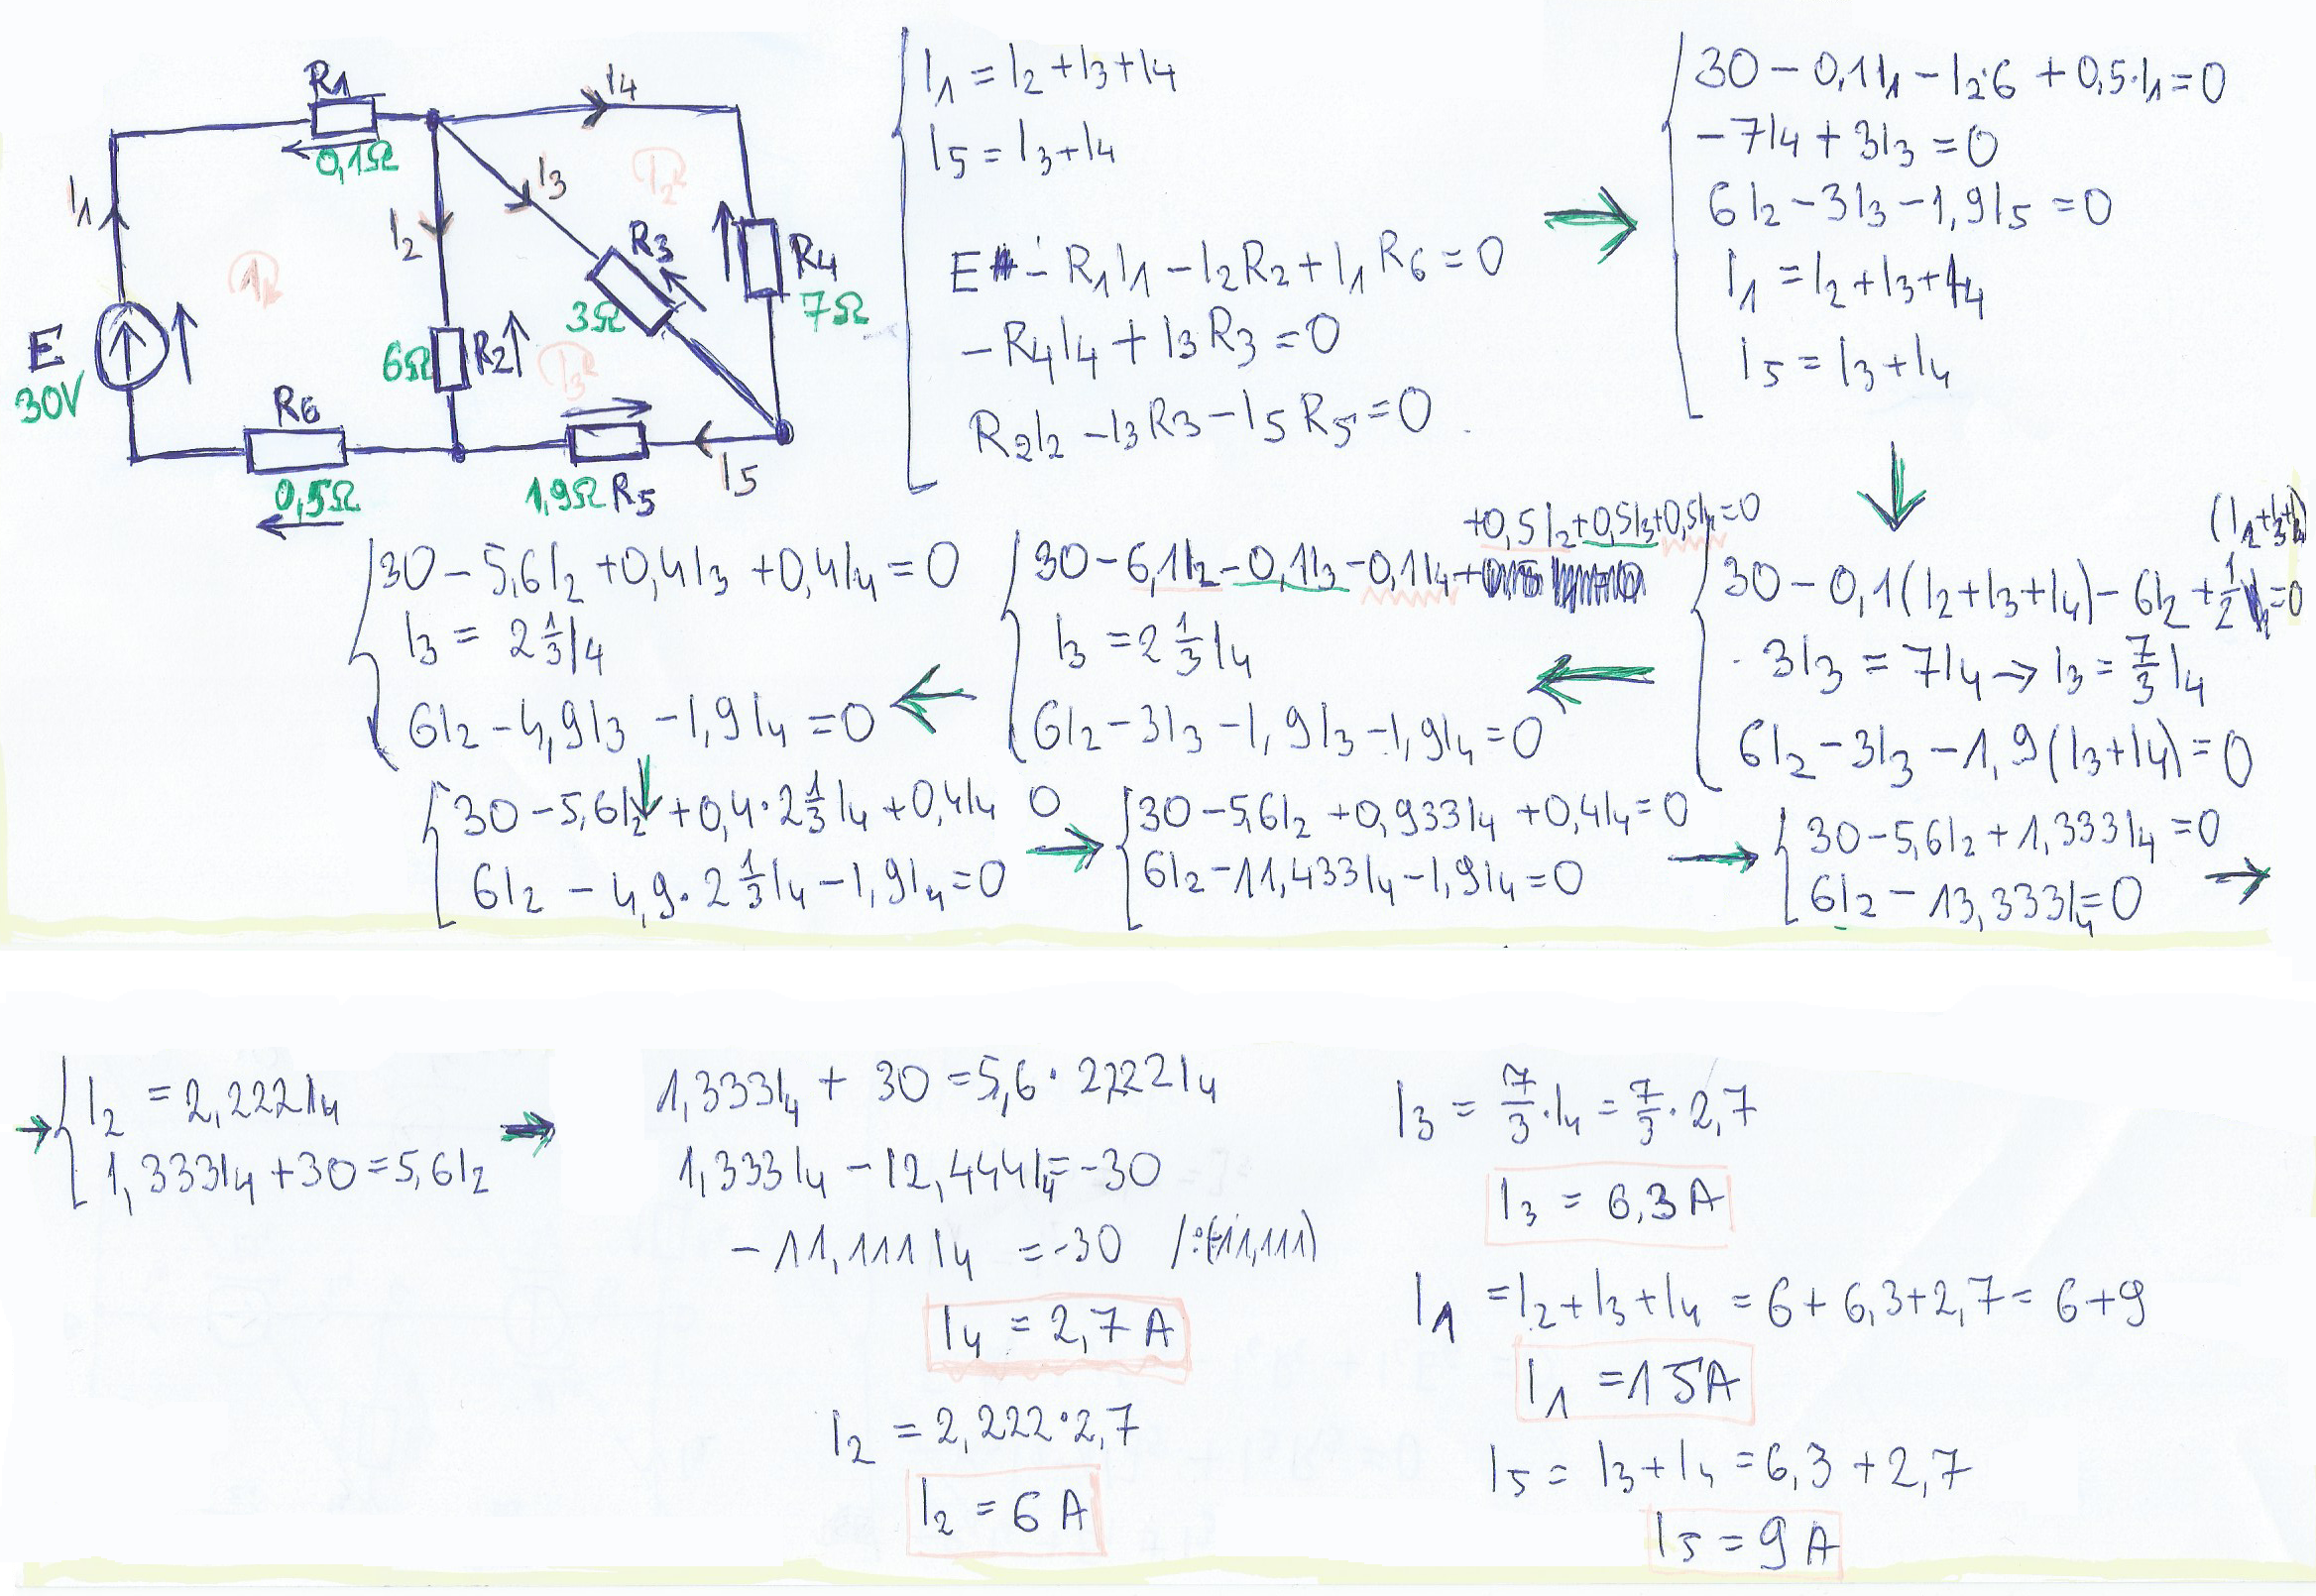 R1
0,1Ω
I4
I3
I2
I1
1
I2
I3
R3
3Ω
R4
7Ω
6Ω
R2
E
30V
R6
0,5Ω
1,9Ω R5
I5
I1 = I2 + I3 + I4
I5 = I3 + I4
E - R1I1 - I2R2 + I1R6 = 0
-R4I4 + I3R3 = 0
R2I2 - I3R3 - I5R5 = 0
30 - 0,1I1 - I2·6 + 0,5·I1 = 0
-7I4 + 3I3 = 0
6I2 - 3I3 - 1,9I5 = 0
I1 = I2 + I3 + I4
I5 = I3 + I4
30 - 0,1(I2 + I3 + I4) - 6I2 + 1/2 = 0
3I3 = 7I4 → I3 = 7/3 I4
6I2 - 3I3 - 1,9(I3 + I4) = 0
+0,5I2 + 0,5I3 + 0,5I4 = 0
30 - 6,1I2 - 0,1I3 - 0,1I4
I3 = 2 1/3 I4
6I2 - 3I3 - 1,9I3 - 1,9I4 = 0
30 - 5,6I2 + 0,4I3 + 0,4I4 = 0
I3 = 2 1/3 I4
6I2 - 4,9I3 - 1,9I4 = 0
30 - 5,6I2 + 0,4·2 1/3 I4 + 0,4I4 0
6I2 - 4,9·2 1/3 I4 - 1,9I4 = 0
30 - 5,6I2 + 0,933I4 + 0,4I4 = 0
6I2 - 11,433I4 - 1,9I4 = 0
30 - 5,6I2 + 1,333I4 = 0
6I2 - 13,333I4 = 0
I2 = 2,222I4
1,333I4 + 30 = 5,6I2
1,333I4 + 30 = 5,6·2,222I4
1,333I4 - 12,444I4 = -30
-11,111I4 = -30 /:(-11,111)
I4 = 2,7 A
I2 = 2,222·2,7
I2 = 6 A
I3 = 7/3·I4 = 7/3·2,7
I3 = 6,3 A
I1 = I2 + I3 + I4 = 6 + 6,3 + 2,7 = 6 + 9
I1 = 15A
I5 = I3 + I4 = 6,3 + 2,7
I5 = 9 A